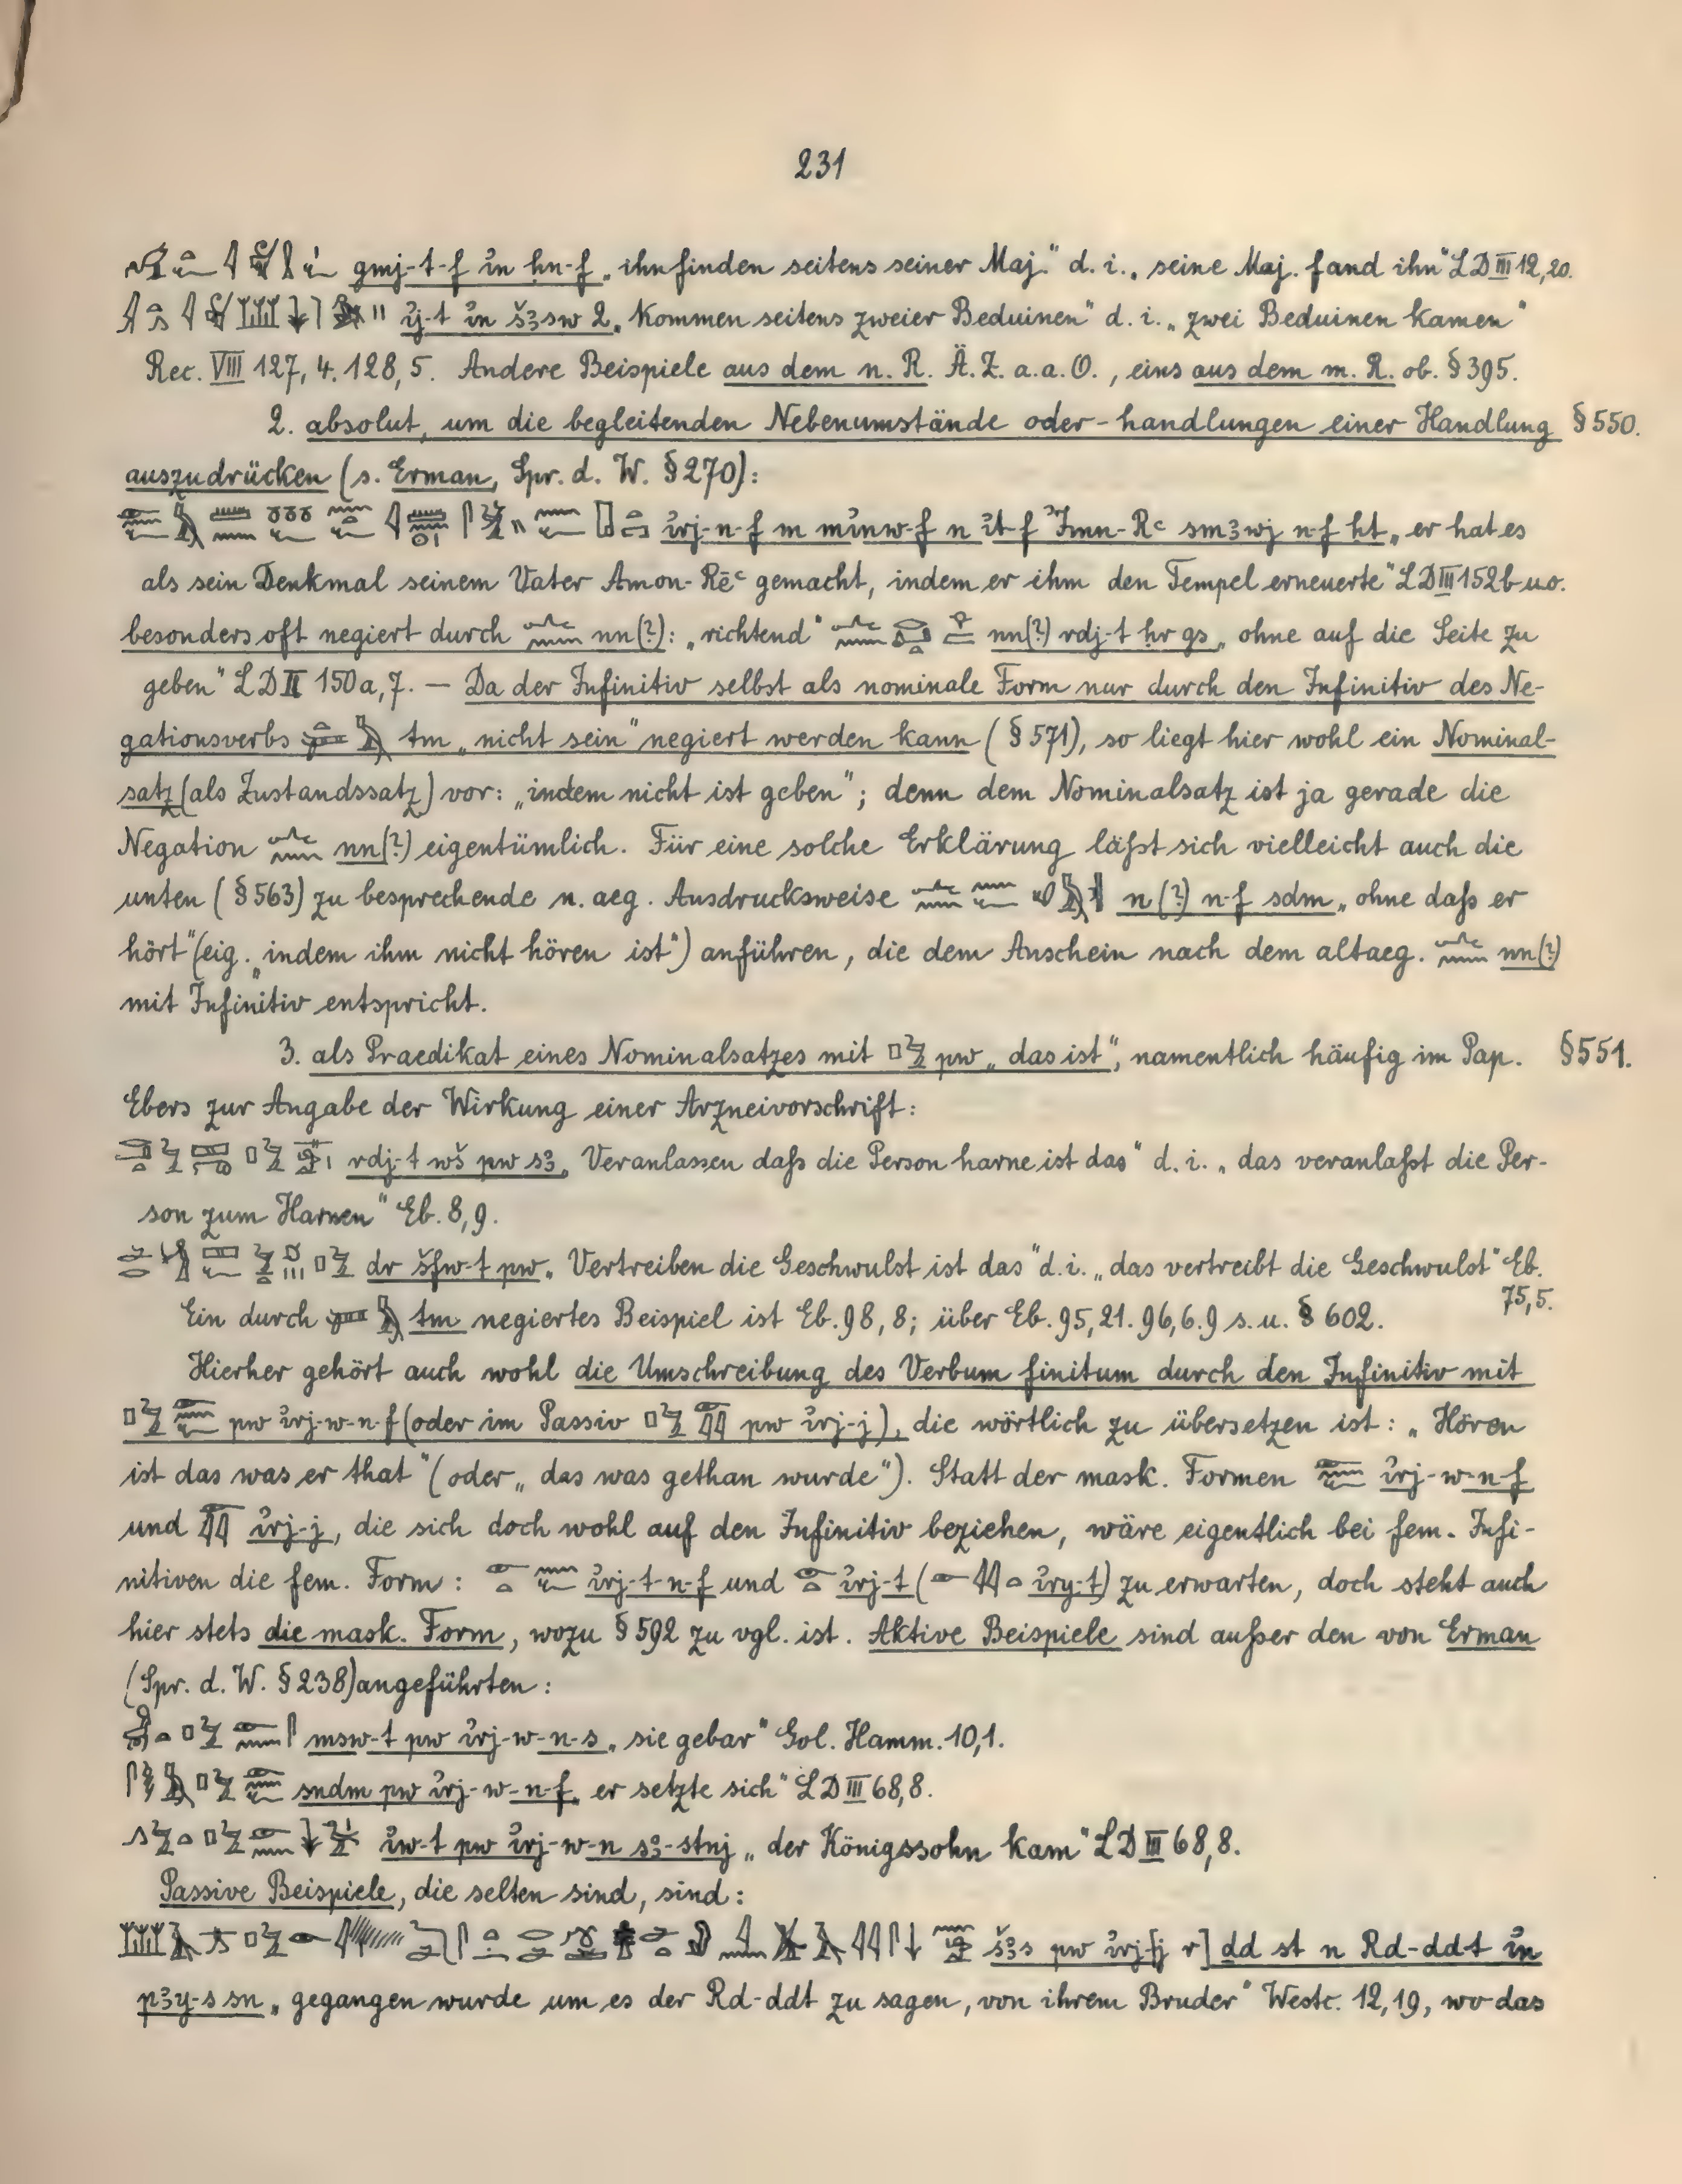 231
gmj-t-f i̓n ḥn-f „ihn finden seitens seiner Maj.“ d. i. „seine Maj. fand ihn“ LD III 12,20.
i̓j-t i̓n šꜣsw 2 „Kommen seitens zweier Beduinen“ d. i. „zwei Beduinen kamen“
Rec. VIII 127, 4. 128, 5. Andere Beispiele aus dem n. R. Ä. Z. a. a. O., eins aus dem m. R. ob. § 395.
2. absolut, um die begleitenden Nebenumstände oder -handlungen einer Handlung § 550.
auszudrücken (s. Erman, Spr. d. W. § 270):
i̓rj-n-f m mi̓nw-f n i̓t-f I̓mn-Rc smꜣwj n-f ht „er hat es
als sein Denkmal seinem Vater Amon-Rēc gemacht, indem er ihm den Tempel erneuerte“ LD III 152b u. o.
besonders oft negiert durch nn(?): „richtend“ nn(?) rdj-t ḥr gs „ohne auf die Seite zu
geben“ LD II 150a, 7. — Da der Infinitiv selbst als nominale Form nur durch den Infinitiv des Ne-
gationsverbs tm „nicht sein“ negiert werden kann (§ 571), so liegt hier wohl ein Nominal-
satz (als Zustandssatz) vor: „indem nicht ist geben“; denn dem Nominalsatz ist ja gerade die
Negation nn(?) eigentümlich. Für eine solche Erklärung läßt sich vielleicht auch die
unten (§ 563) zu besprechende n. aeg. Ausdrucksweise n(?) n-f sdm „ohne daß er
hört“ (eig. „indem ihm nicht hören ist“) anführen, die dem Anschein nach dem altaeg. nn(?)
mit Infinitiv entspricht.
3. als Praedikat eines Nominalsatzes mit pw „das ist“, namentlich häufig im Pap. § 551.
Ebers zur Angabe der Wirkung einer Arzneivorschrift:
rdj-t wš pw sꜣ „Veranlassen daß die Person harne ist das“ d. i. „das veranlaßt die Per-
son zum Harnen“ Eb. 8, 9.
dr šfw-t pw „Vertreiben die Geschwulst ist das“ d. i. „das vertreibt die Geschwulst“ Eb.
75, 5.
Ein durch tm negiertes Beispiel ist Eb. 98, 8; über Eb. 95, 21. 96, 6. 9 s. u. § 602.
Hierher gehört auch wohl die Umschreibung des Verbum finitum durch den Infinitiv mit
pw i̓rj-w-n-f (oder im Passiv pw i̓rj-j), die wörtlich zu übersetzen ist: „Hören
ist das was er that“ (oder „das was gethan wurde“). Statt der mask. Formen i̓rj-w-n-f
und i̓rj-j, die sich doch wohl auf den Infinitiv beziehen, wäre eigentlich bei fem. Infi-
nitiven die fem. Form: i̓rj-t-n-f und i̓rj-t (i̓ry-t) zu erwarten, doch steht auch
hier stets die mask. Form, wozu § 592 zu vgl. ist. Aktive Beispiele sind außer den von Erman
(Spr. d. W. § 238) angeführten:
msw-t pw i̓rj-w-n-s „sie gebar“ Gol. Hamm. 10, 1.
sndm pw i̓rj-w-n-f „er setzte sich“ LD III 68, 8.
i̓w-t pw i̓rj-w-n sꜣ-stnj „der Königssohn kam“ LD III 68, 8.
Passive Beispiele, die selten sind, sind:
šꜣs pw i̓rj[j r] dd st n Rd-ddt i̓n
pꜣy-s sn „gegangen wurde um es der Rd-ddt zu sagen, von ihrem Bruder“ Westc. 12, 19, wo das